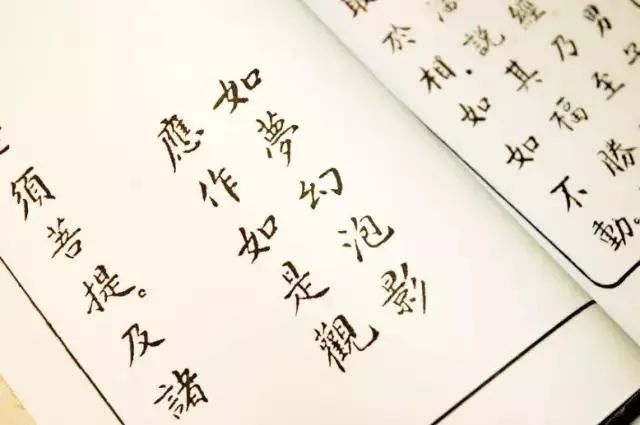 男子
經乃至
說其福勝
取於相，如如不動。
如夢幻泡影
應作如是觀
須菩提。及諸